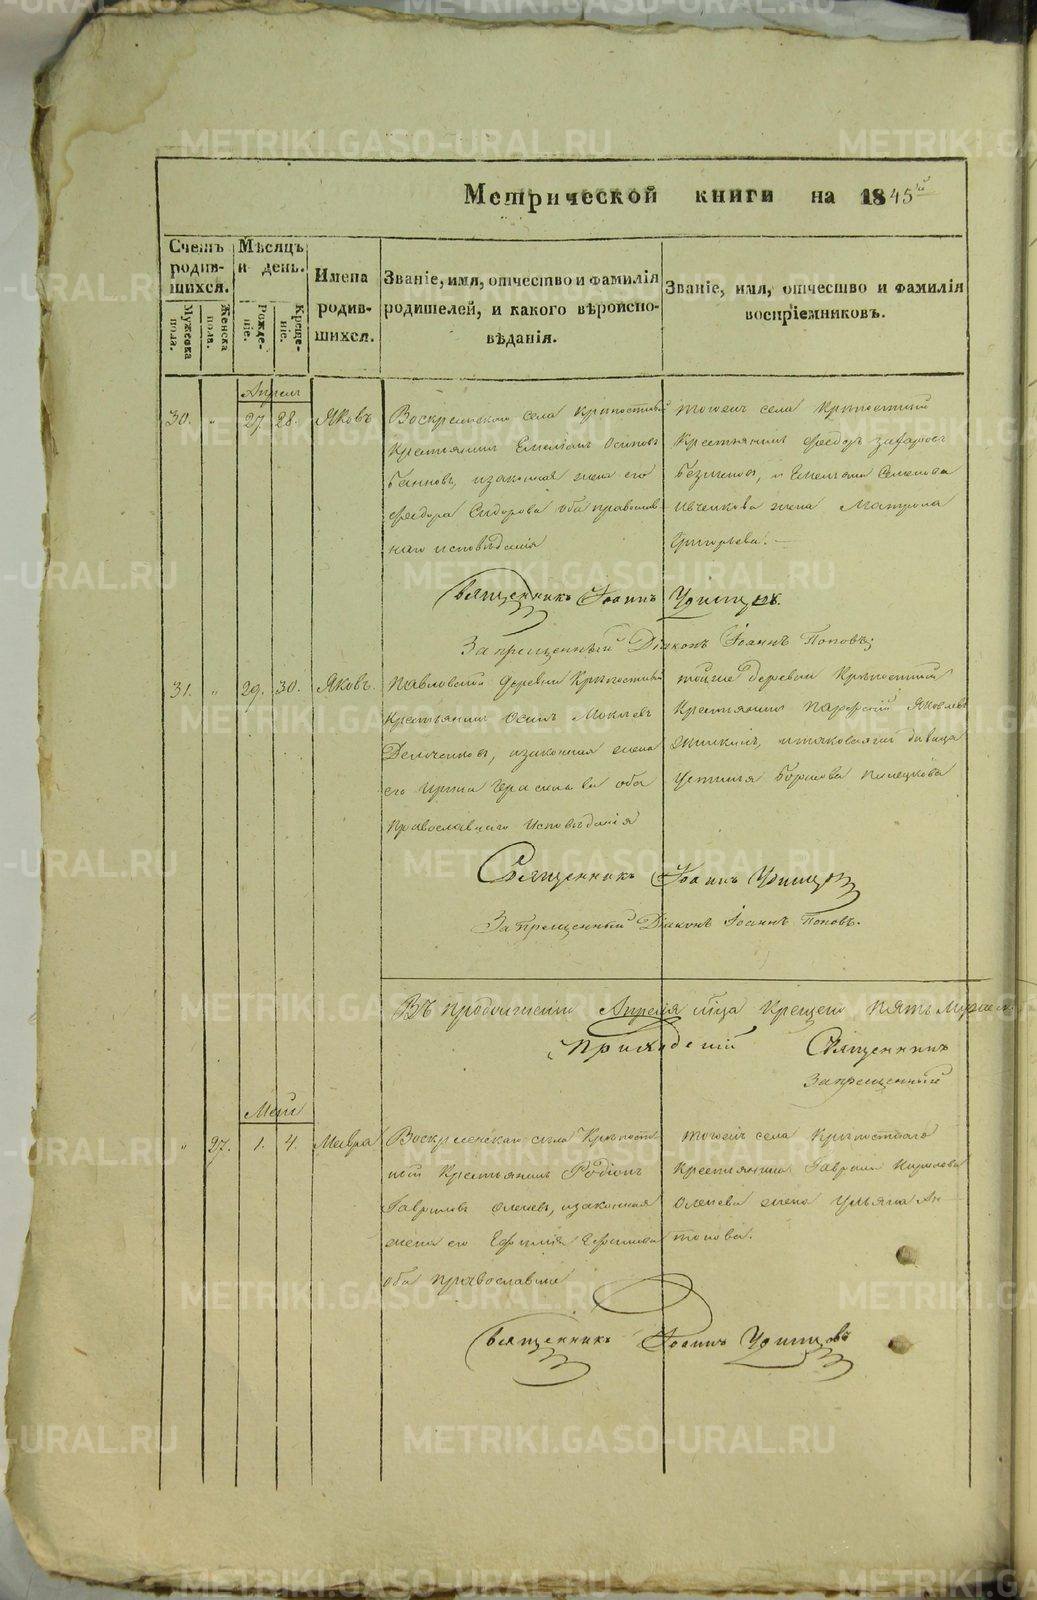 Метрической книги на 1845й
Счетъ родив- шихся.
Мужеска пола.
Женска пола.
Мѣсяцъ и день.
Рожде- ніе.
Креще- ніе.
Имена родив- шихся.
Званіе, имя, отчество и фамилія
родителей, и какого вѣроиспо-
вѣданія.
Званіе, имя, отчество и фамилія
воспріемниковъ.
Апрель
30. " 27. 28. Яковъ
Воскресенскаго села Крѣпостный
Крестьянинъ Емельянъ Осиповъ
и законная жена его
Федора Сидорова оба православ
наго исповѣданія
тогоже села Крѣпостный
Крестьянинъ Федоръ Захаровъ
и Емельяна Семенова
жена Матрона
Григорьева.
Священникъ Іоаннъ Удинцовъ.
Запрещенный Діаконъ Іоаннъ Поповъ.
31. " 29. 30. Яковъ.
Павловской деревни Крѣпостный
Крестьянинъ Осипъ
Демченковъ, и законная жена
его Ирина Герасимова оба
Православнаго Исповѣданія
тойже деревни Крѣпостный
Крестьянинъ Парфеній Яковлевъ
девица
Устинья Борисова
Священникъ Іоаннъ Удинцовъ
Запрещенный Діаконъ Іоаннъ Поповъ.
Въ продолженіи Апреля м҃ца Крещено пять
Приходскій Священникъ
Запрещенный
Май
" 27. 1. 4. Мавра
Воскресенскаго села Крѣпост
ный Крестьянинъ Родіонъ
Гавриловъ и законная
жена его Ефимія Ефимова
оба православные
тогоже села Крѣпостнаго
Крестьянина Гаврилы Кирилова
жена Ульяна Ан
тонова.
Священникъ Іоаннъ Удинцовъ
METRIKI.GASO-URAL.RU